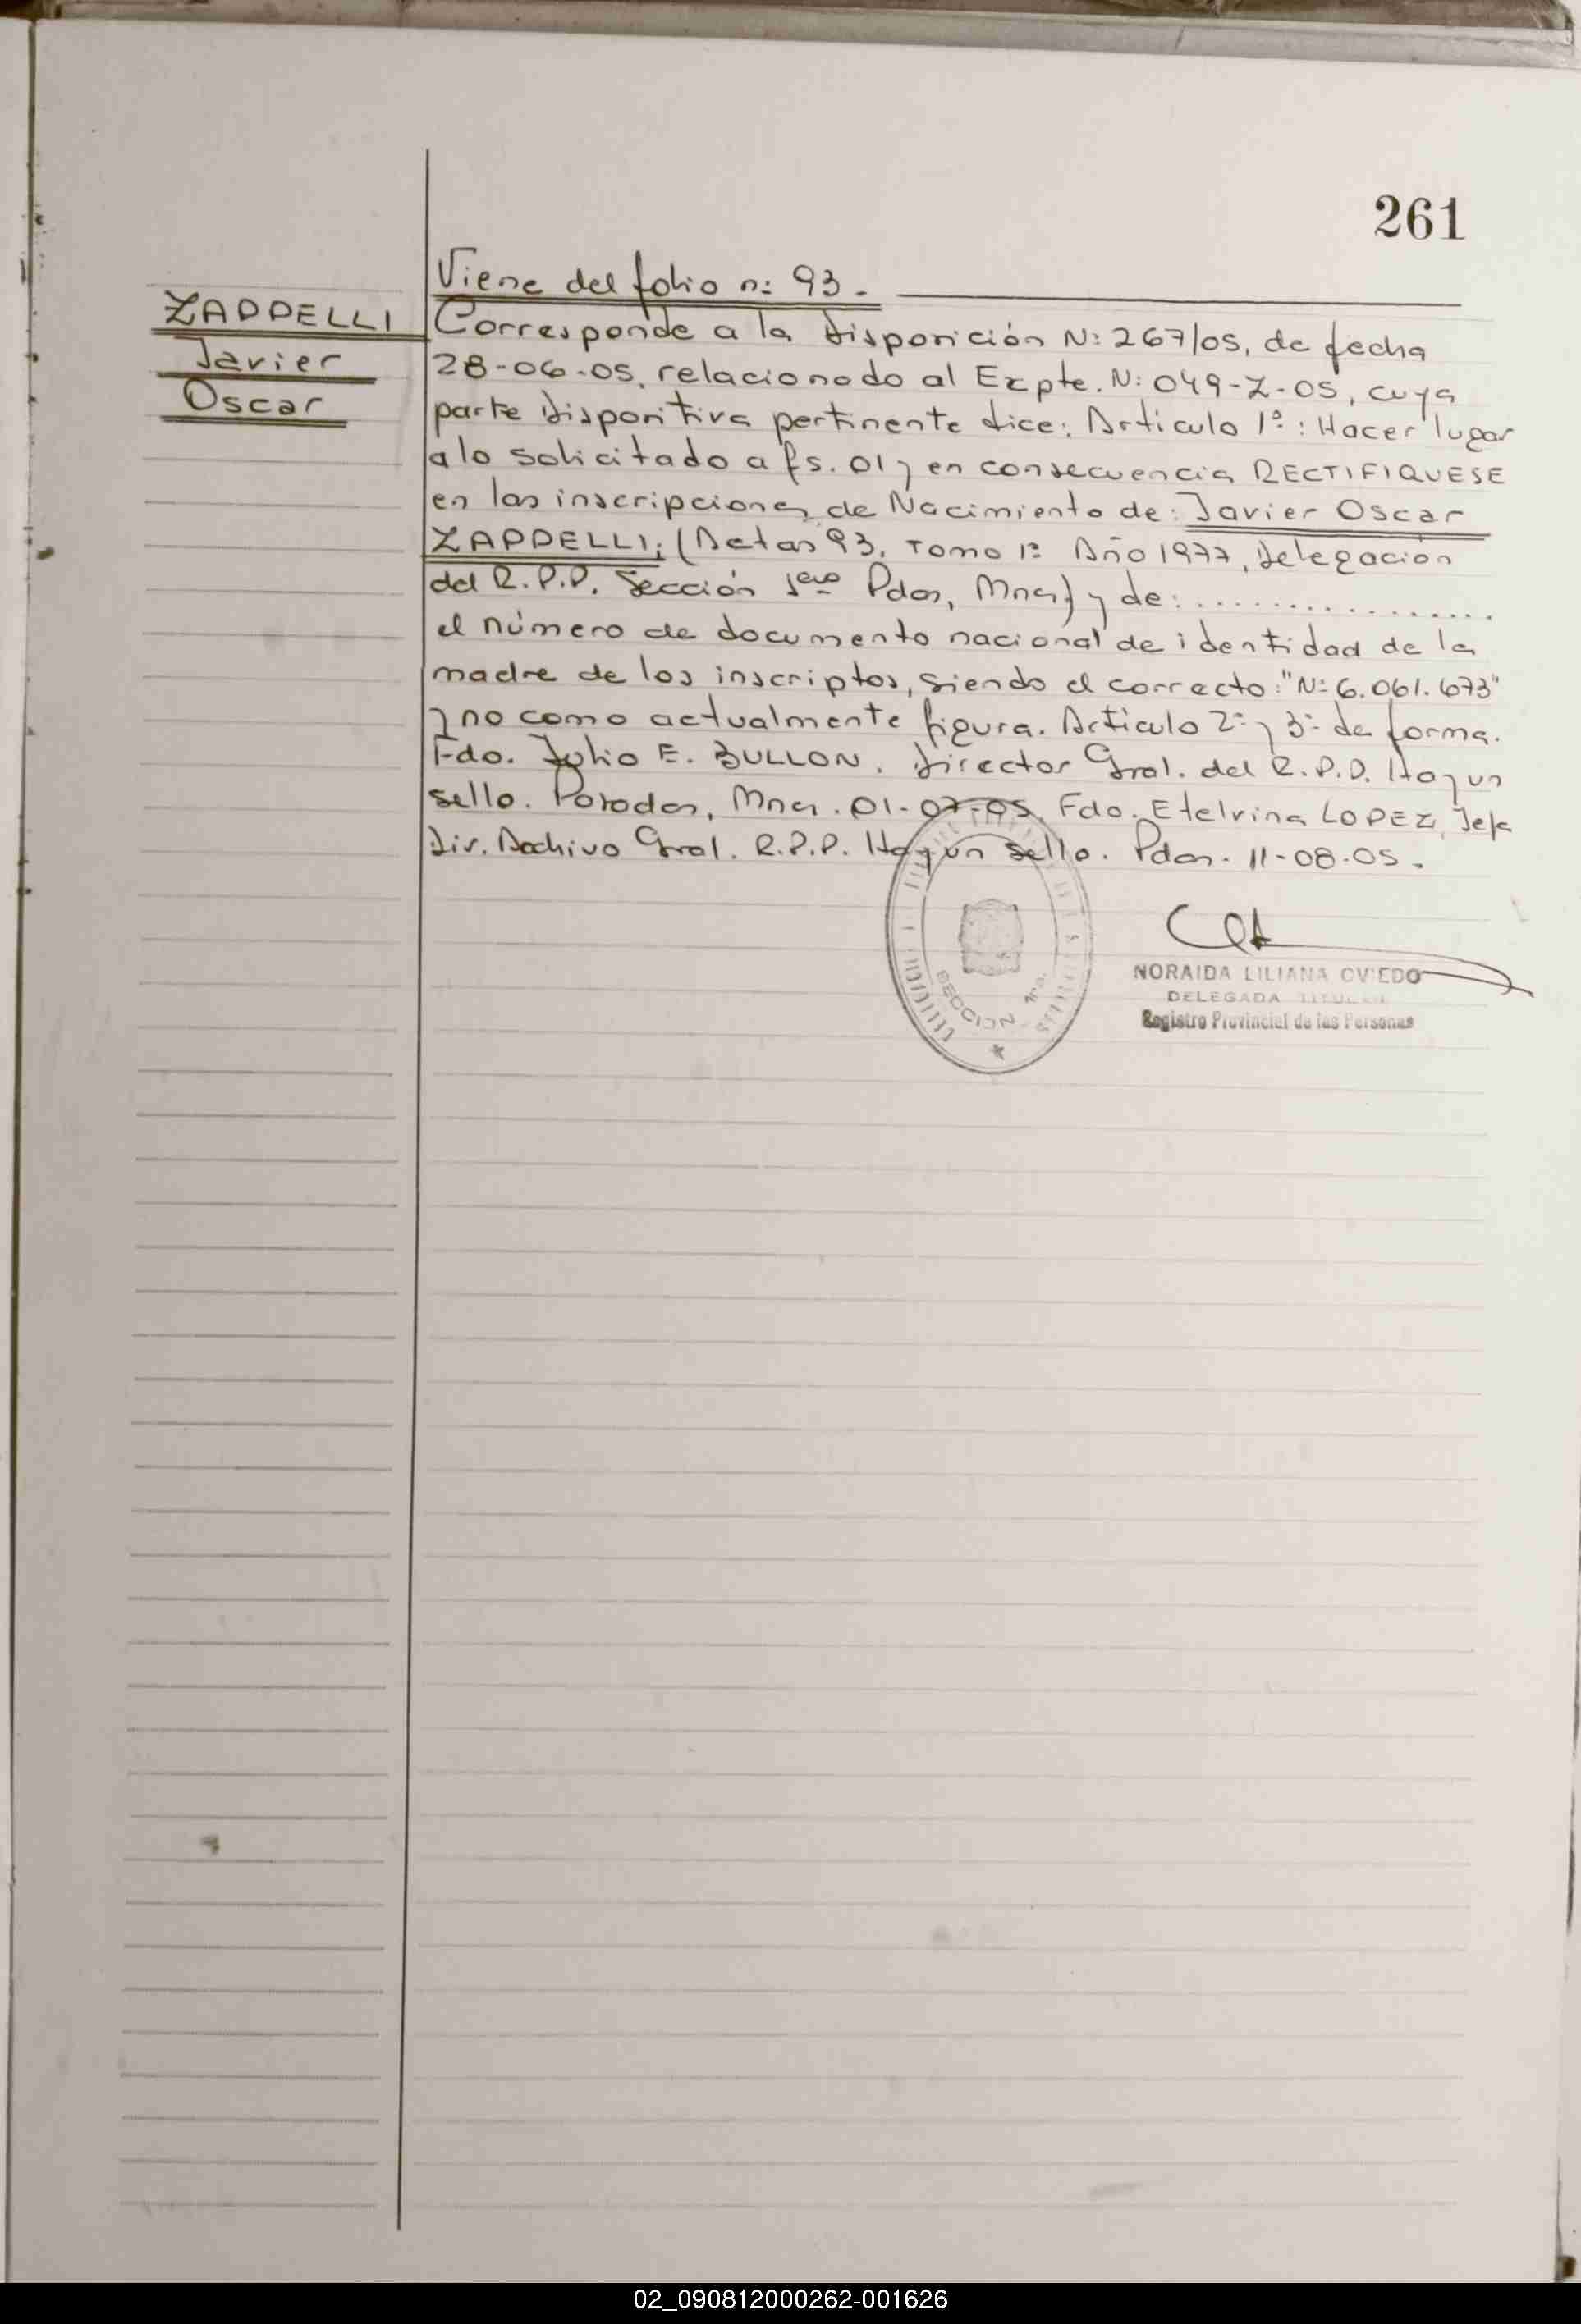 261
Viene del folio n: 93.
ZAPPELLI
Javier
Oscar
Corresponde a la Disposición N: 267/05, de fecha
28-06-05, relacionado al Expte. N: 049-Z-05, cuya
parte Dispositiva pertinente dice: Artículo 1º: Hacer lugar
a lo solicitado a fs. 01 y en consecuencia RECTIFIQUESE
en las inscripciones de Nacimiento de: Javier Oscar
ZAPPELLI; (Actas 93, Tomo 1º Año 1977, Delegación
del R.P.P. Sección 1era Pdas, Mnes) y de: ................
el número de documento nacional de identidad de la
madre de los inscriptos, siendo el correcto: "Nº 6.061.673"
y no como actualmente figura. Artículo 2º y 3º de forma.
Fdo. Julio E. BULLON. Director Gral. del R.P.P. Hay un
sello. Posadas, Mnes. 01-07-05. Fdo. Etelvina LOPEZ, Jefe
Div. Archivo Gral. R.P.P. Hay un sello. Pdas. 11-08-05.
SECCION 1ra.
NORAIDA LILIANA OVIEDO
DELEGADA TITULAR
Registro Provincial de las Personas
02_090812000262-001626